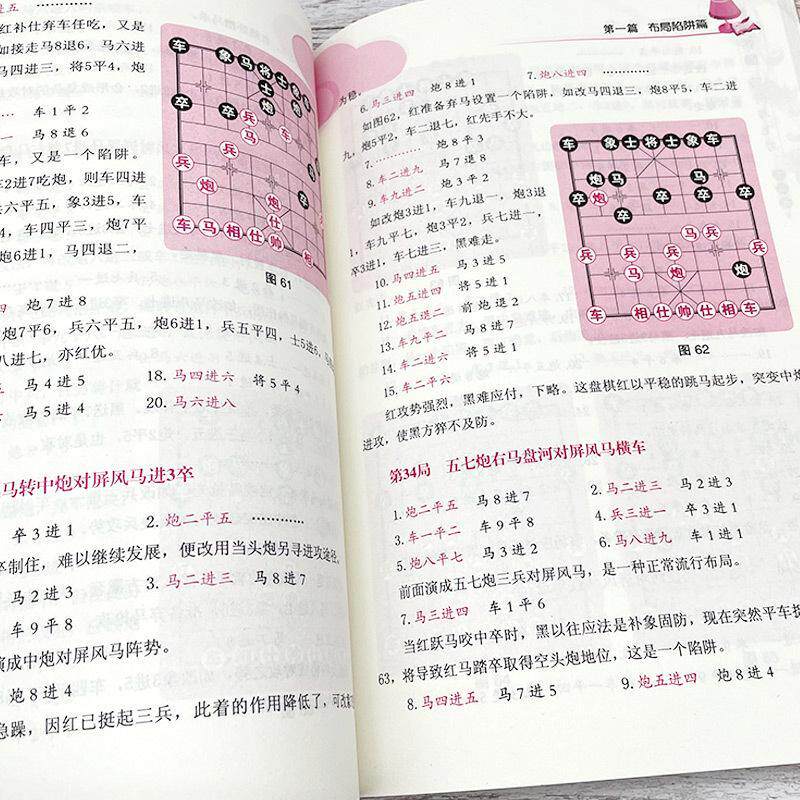 进五 …………
红补仕弃车任吃，又是
如接走马8退6，马六进
马四进三，将5平4，炮
车1平2
马8退6
车，又是一个陷阱。
车2进7吃炮，则车四进
5平6，象3进5，车
平三，车4平三，炮7平
炮6进1，马四退二，
炮7进8
炮7平6，兵六平五，炮6进1，兵五平四，士5进6，马
八进七，亦红优。
马4进5 18.马四进六 将5平4
马5进4 20.马六进八
车 象 马 将 士 象
士 炮
卒 卒 兵 车 卒
马
兵 兵
炮 炮
车 马 相 仕 帅 相
图 61
马转中炮对屏风马进3卒
卒3进1 2.炮二平五 …………
卒制住，难以继续发展，便改用当头炮另寻进攻途径。
马2进3 3.马二进三 马8进7
车9平8
演成中炮对屏风马阵势。
炮8进4
急躁，因红已挺起三兵，此着的作用降低了，可改
第一篇 布局陷阱篇
为稳，
6.马三进四 炮8进1 7.炮八进四 …………
如图62，红准备弃马设置一个陷阱，如改马四退三，炮8平5，车二进
九，炮5平2，车二退七，红先手不大。
7.………… 炮8平3
8.车二进九 马7退8
9.车九进二 炮3平2
如改炮3进1，车九退一，炮3退
1，车九平七，炮3平2，兵七进一，
卒3进1，车七进三，黑难走。
10.马四进五 将5进1
11.炮五进四 将5进1
12.炮五退二 前炮退2
13.车九平二 马8进7
14.车二进六 将5进1
15.车二平六
车 象 士 将 士 象 车
炮 马
卒 炮 卒 卒 卒
卒
马
兵 兵 兵 兵
马 炮 炮
车 相 仕 帅 仕 相 车
图 62
红攻势强烈，黑难应付，下略。这盘棋红以平稳的跳马起步，突变中炮
进攻，使黑方猝不及防。
第34局 五七炮右马盘河对屏风马横车
1.炮二平五 马8进7 2.马二进三 马2进3
3.车一平二 车9平8 4.兵三进一 卒3进1
5.炮八平七 马3进2 6.马八进九 车1进1
前面演成五七炮三兵对屏风马，是一种正常流行布局。
7.马三进四 车1平6
当红跃马咬中卒时，黑以往应法是补象固防，现在突然平车
63，将导致红马踏卒取得空头炮地位，这是一个陷阱。
8.马四进五 马7进5 9.炮五进四 炮8进4